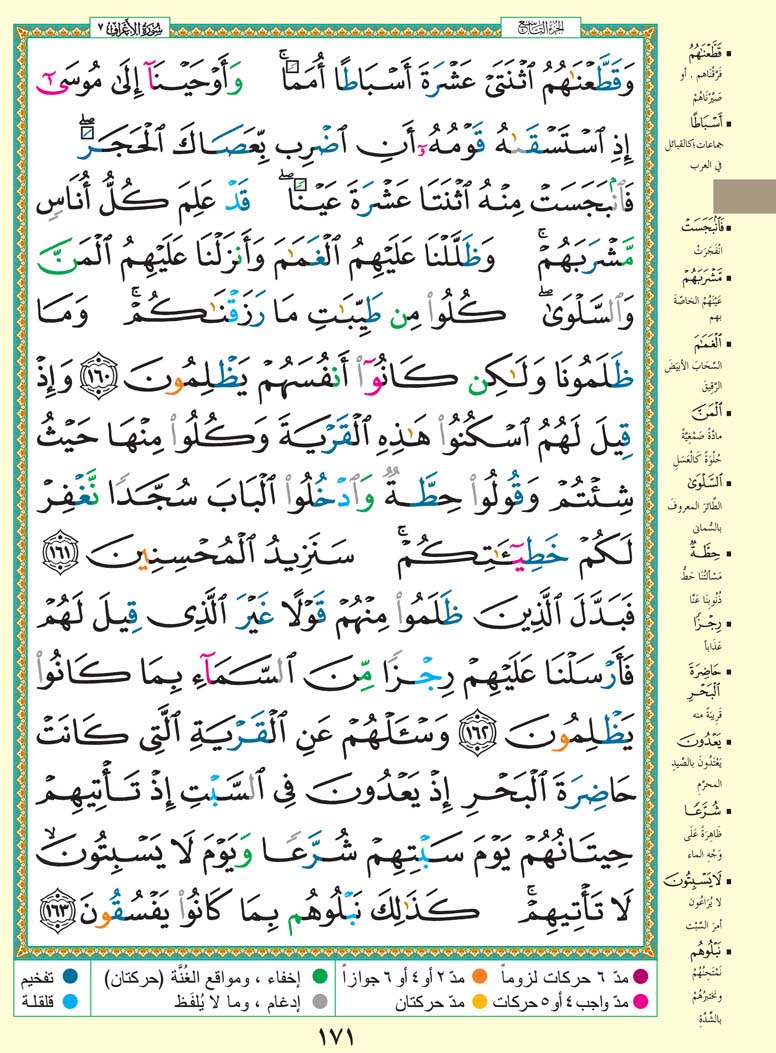 الجزء التاسع
سورة الأعراف ٧
وَقَطَّعْنَٰهُمُ ٱثْنَتَىْ عَشْرَةَ أَسْبَاطًا أُمَمًا ۚ وَأَوْحَيْنَآ إِلَىٰ مُوسَىٰٓ
إِذِ ٱسْتَسْقَىٰهُ قَوْمُهُۥٓ أَنِ ٱضْرِب بِّعَصَاكَ ٱلْحَجَرَ ۖ
فَٱنۢبَجَسَتْ مِنْهُ ٱثْنَتَا عَشْرَةَ عَيْنًا ۖ قَدْ عَلِمَ كُلُّ أُنَاسٍ
مَّشْرَبَهُمْ ۚ وَظَلَّلْنَا عَلَيْهِمُ ٱلْغَمَٰمَ وَأَنزَلْنَا عَلَيْهِمُ ٱلْمَنَّ
وَٱلسَّلْوَىٰ ۖ كُلُوا۟ مِن طَيِّبَٰتِ مَا رَزَقْنَٰكُمْ ۚ وَمَا
ظَلَمُونَا وَلَٰكِن كَانُوٓا۟ أَنفُسَهُمْ يَظْلِمُونَ ١٦٠ وَإِذْ
قِيلَ لَهُمُ ٱسْكُنُوا۟ هَٰذِهِ ٱلْقَرْيَةَ وَكُلُوا۟ مِنْهَا حَيْثُ
شِئْتُمْ وَقُولُوا۟ حِطَّةٌ وَٱدْخُلُوا۟ ٱلْبَابَ سُجَّدًا نَّغْفِرْ
لَكُمْ خَطِيٓـَٰٔتِكُمْ ۚ سَنَزِيدُ ٱلْمُحْسِنِينَ ١٦١
فَبَدَّلَ ٱلَّذِينَ ظَلَمُوا۟ مِنْهُمْ قَوْلًا غَيْرَ ٱلَّذِى قِيلَ لَهُمْ
فَأَرْسَلْنَا عَلَيْهِمْ رِجْزًا مِّنَ ٱلسَّمَآءِ بِمَا كَانُوا۟
يَظْلِمُونَ ١٦٢ وَسْـَٔلْهُمْ عَنِ ٱلْقَرْيَةِ ٱلَّتِى كَانَتْ
حَاضِرَةَ ٱلْبَحْرِ إِذْ يَعْدُونَ فِى ٱلسَّبْتِ إِذْ تَأْتِيهِمْ
حِيتَانُهُمْ يَوْمَ سَبْتِهِمْ شُرَّعًا وَيَوْمَ لَا يَسْبِتُونَ ۙ
لَا تَأْتِيهِمْ ۚ كَذَٰلِكَ نَبْلُوهُم بِمَا كَانُوا۟ يَفْسُقُونَ ١٦٣
قَطَّعْنَٰهُمُ
فَرَّقْنَاهم . أو
صَيَّرْنَاهُمْ
أَسْبَاطًا
جماعات؛ كالقبائل
في العرب
فَٱنۢبَجَسَتْ
انْفَجَرَتْ
مَّشْرَبَهُمْ
عَيْنَهُمْ الخاصّة
بهم
ٱلْغَمَٰمَ
السَّحَابَ الأبيَضَ
الرَّقِيقَ
ٱلْمَنَّ
مادّةً صَمْغِيَّةً
حُلْوَةً كَالعَسَلِ
ٱلسَّلْوَىٰ
الطَّائرَ المعروفَ
بالسُّمانى
حِطَّةٌ
مَسْأَلَتُنَا حَطُّ
ذُنُوبِنا عَنَّا
رِجْزًا
عَذَاباً
حَاضِرَةَ
ٱلْبَحْرِ
قَرِيبَةً منه
يَعْدُونَ
يَعْتَدُونَ بالصَّيدِ
المحرَّمِ
شُرَّعًا
ظَاهِرَةً عَلَى
وَجْهِ الماء
لَا يَسْبِتُونَ
لا يُرَاعُون
أمرَ السَّبْت
نَبْلُوهُم
نَمْتَحِنُهُمْ
ونَختبِرُهُمْ
بالشِّدَّةِ
مدّ ٦ حركات لزوماً
مدّ ٢ أو ٤ أو ٦ جوازاً
إخفاء ، ومواقع الغُنَّة (حركتان)
تفخيم
مدّ واجب ٤ أو ٥ حركات
مدّ حركتان
إدغام ، وما لا يُلفَظ
قلقلة
١٧١